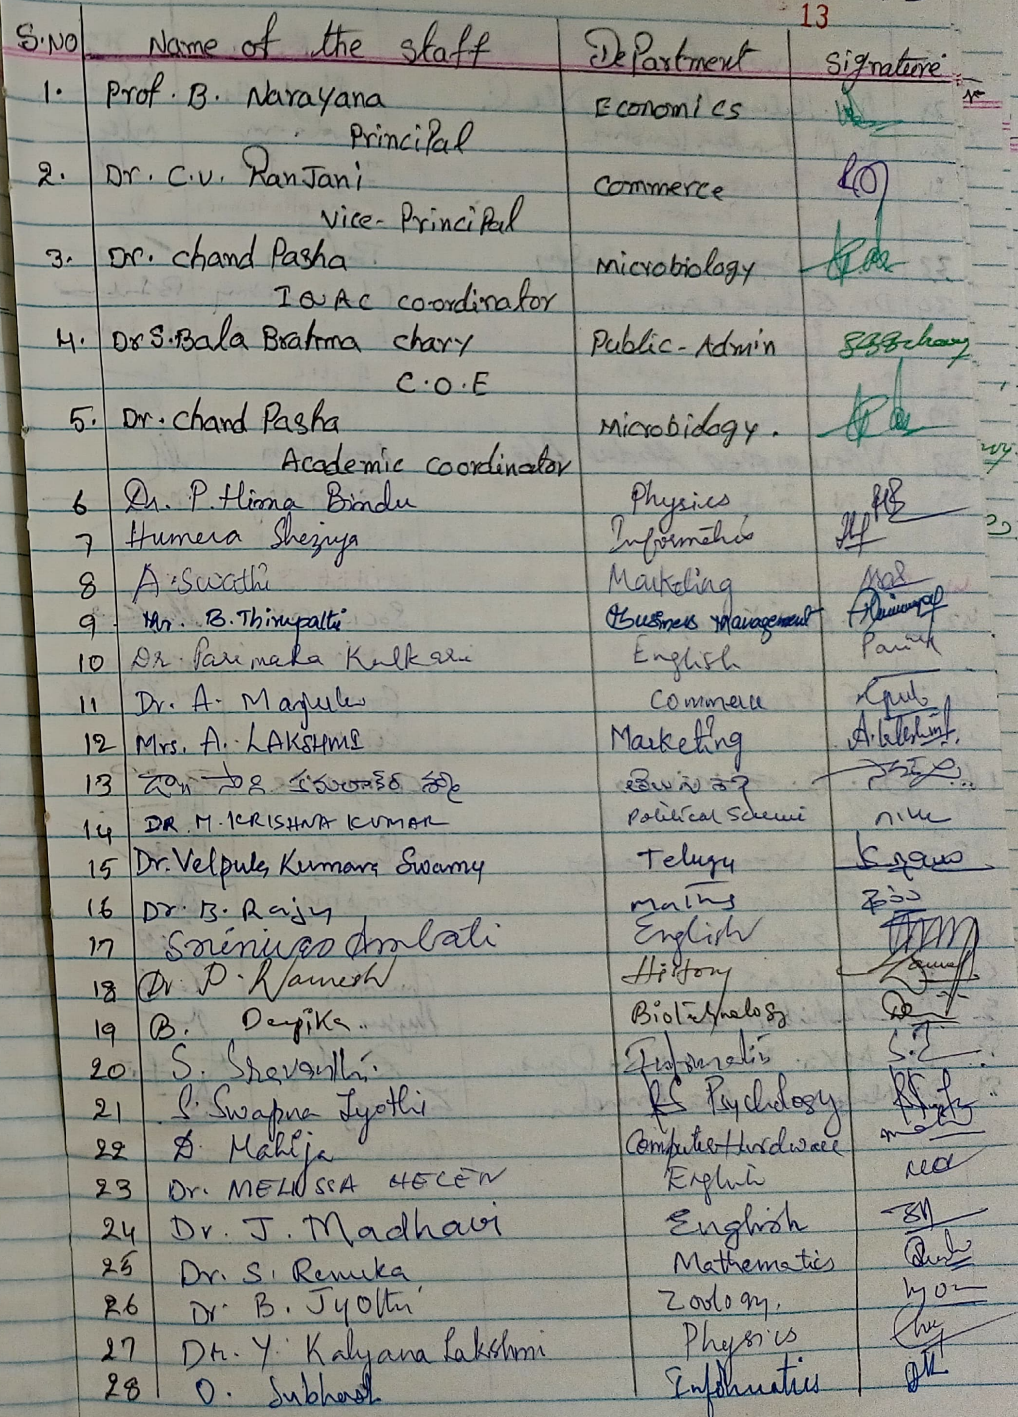 13
S.NO Name of the staff Department Signature
1. Prof. B. Narayana Economics
Principal
2. Dr. C.V. Ranjani Commerce
Vice-Principal
3. Dr. Chand Pasha Microbiology
IQAC Co-ordinator
4. Dr S. Bala Brahma chary Public-Admin SBBchary
C.O.E
5. Dr. Chand Pasha Microbiology.
Academic Coordinator
6 Dr. P. Hima Bindu Physics
7 Humera Sheziya Informatics
8 A. Swathi Marketing
9 Mr. B. Thirupathi Business Management
10 Dr. Parimala Kulkarni English
11 Dr. A. Manjula Commerce
12 Mrs. A. LAKSHMI Marketing A. Lakshmi
13
14 DR. M. KRISHNA KUMAR Political Science
15 Dr. Velpula Kumara Swamy Telugu
16 Dr. B. Raju Maths
17 Srinivas Ambati English
18 Dr. P. Ramesh History
19 B. Deepika Biotechnology
20 S. Sravanthi Informatics
21 S. Swapna Jyothi Psychology
22 D. Mahija Computer Hardware
23 Dr. MELISSA HELEN English
24 Dr. J. Madhavi English
25 Dr. S. Renuka Mathematics
26 Dr. B. Jyothi Zoology.
27 Dr. Y. Kalyana Lakshmi Physics
28 O. Subhash Informatics